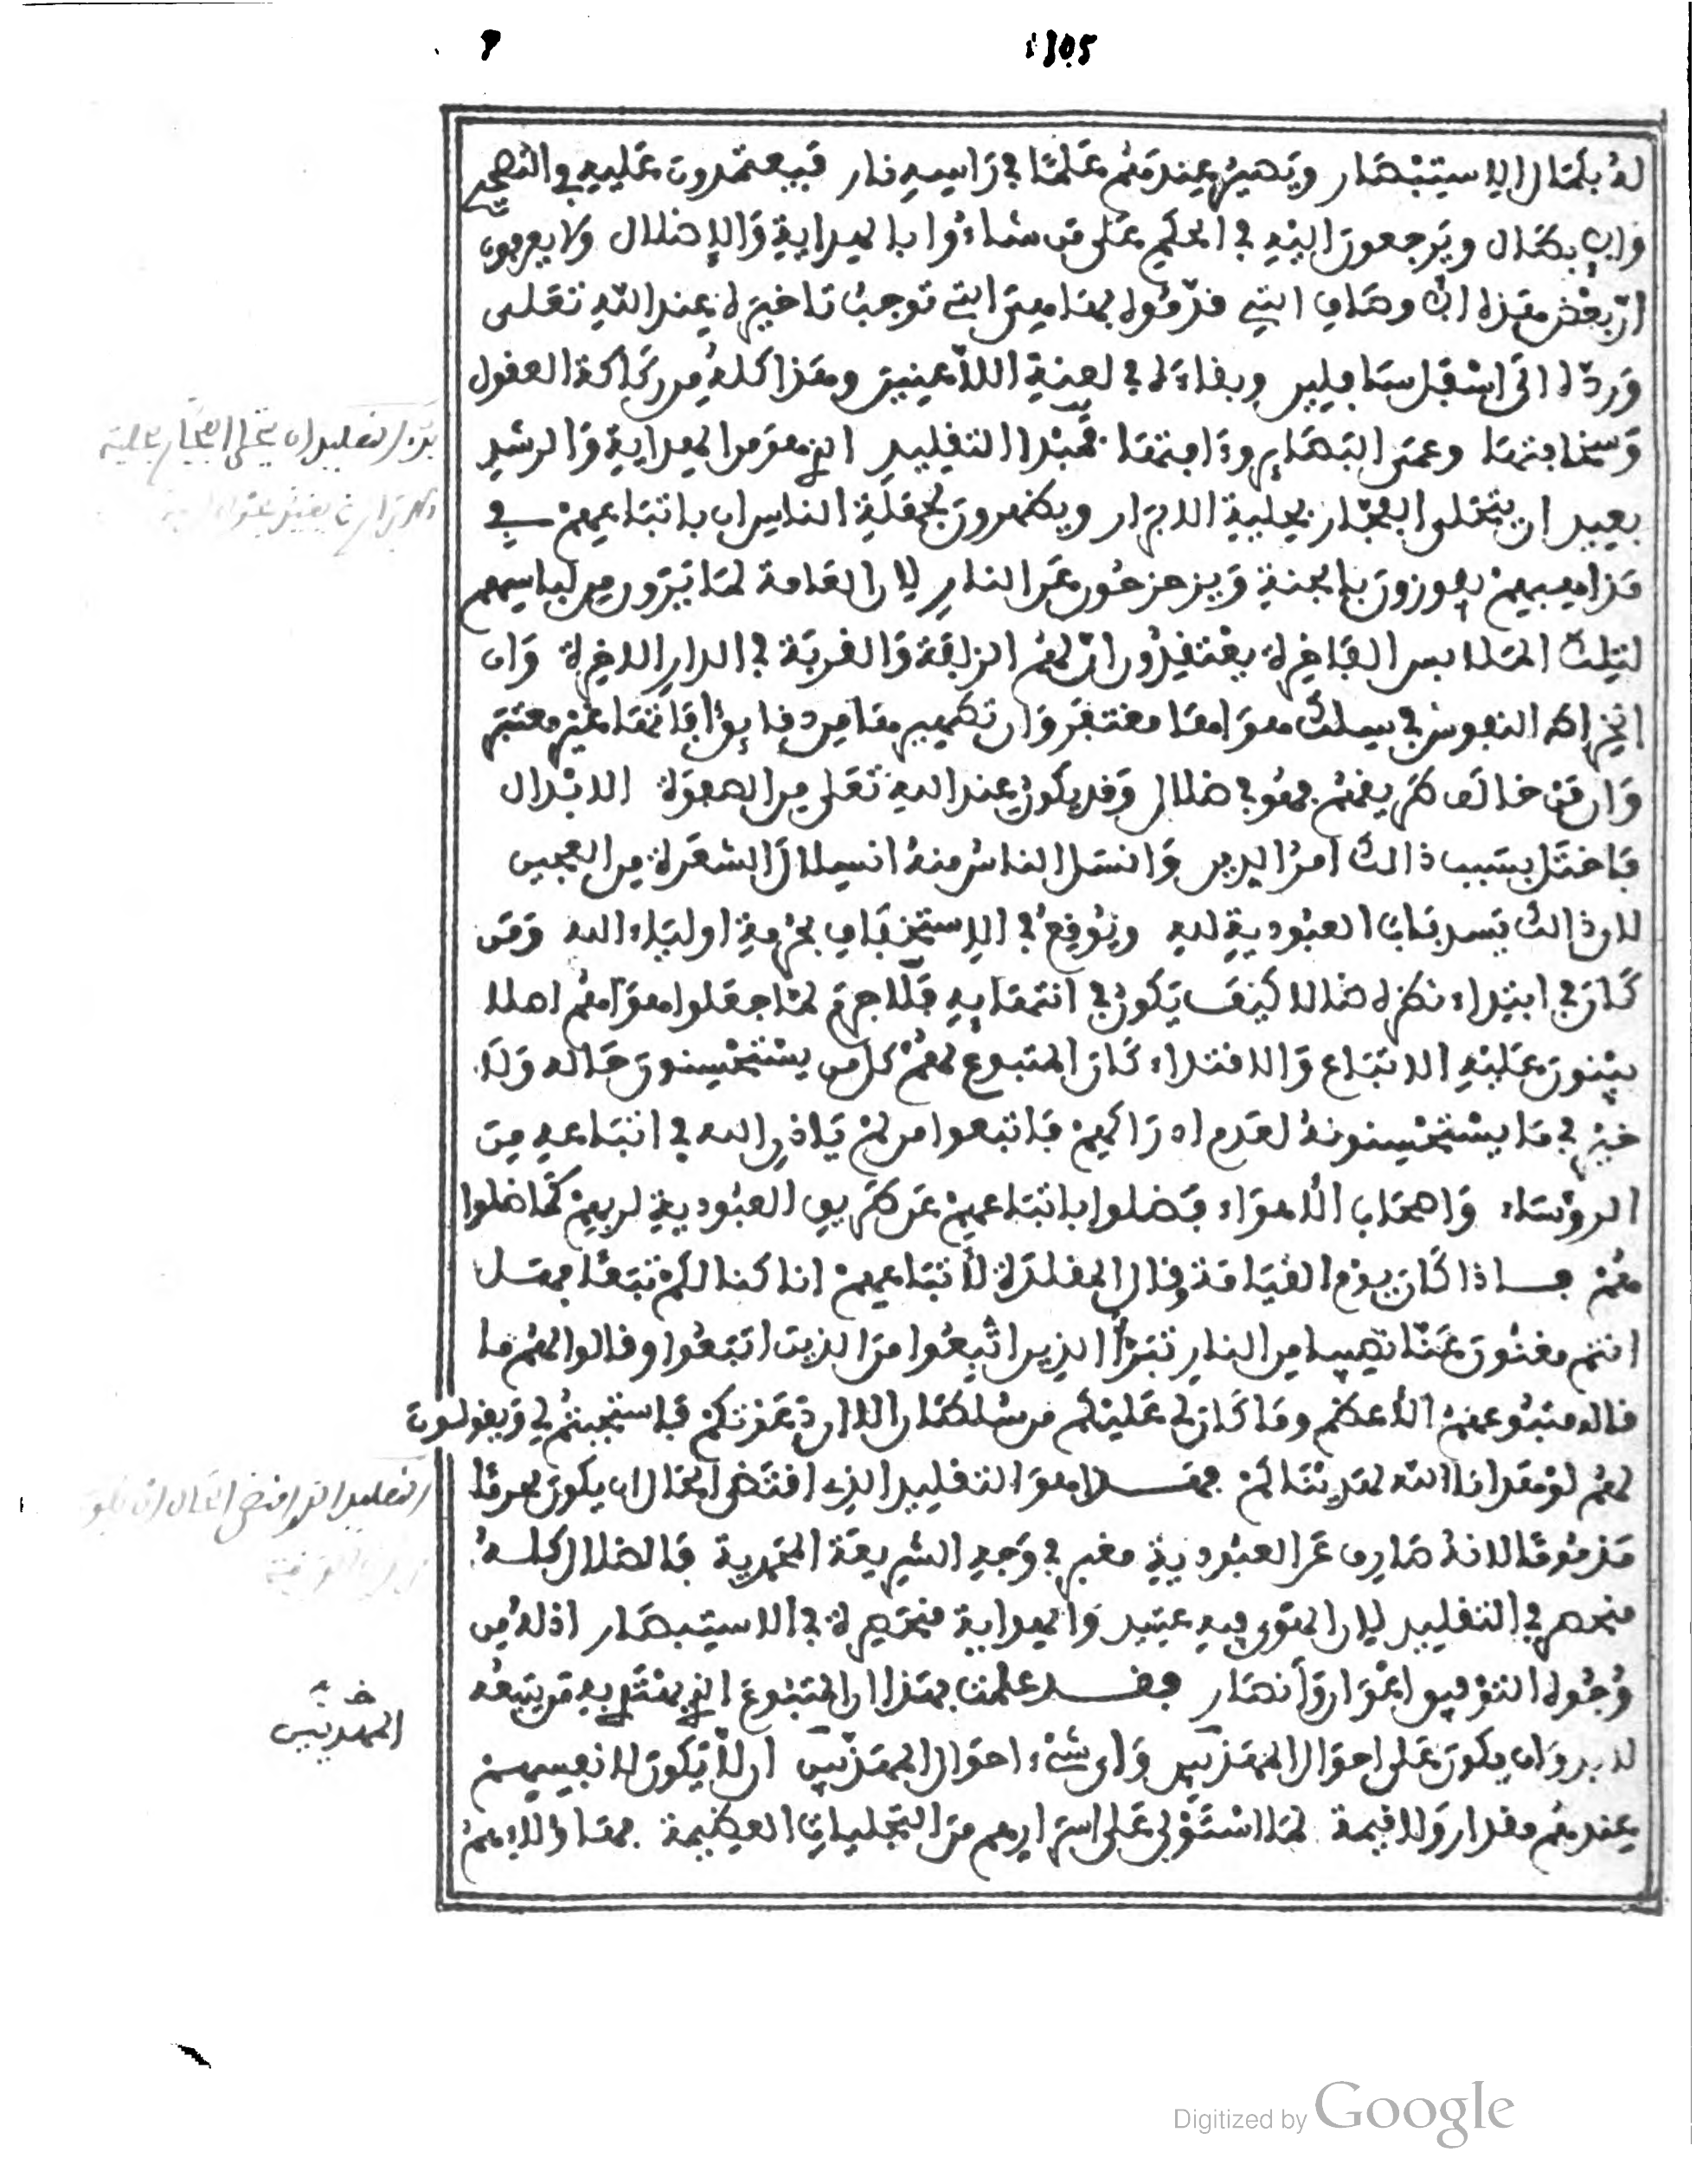 1305
له بكمال الاستبصار ويصير عندهم علما في راسه نار فيعتمدون عليه في التصحيح
والابطال ويرجعون اليه في الحكم على من شاءوا بالهداية والإضلال ولا يعرفون
ان بعض هذه الاوصاف التي قدموه بها هي التي توجب تاخيره عند الله تعلى
ورده الى اسفل سافلين وبقاءه في لعنة اللاعنين وهذا كله من ركاكة العقول
وسخافتها وعمى البصاير وذا مبدا التقليد الخ هو من الهداية والرشد
بعيد ان يتحلوا الفجار بحلية الابرار ويظهرون لجهلة الناس ان باتباعهم في
مذاهبهم يفوزون بالجنة ويزحزحون عن النار لان العامة لما يرون من لباسهم
لتلك الملابس الفاخرة يعتقدون ان لهم الزلفة والقربة في الدار الاخرة وان
انخراط النفوس في سلك هواها مغتفر وان تطهيرها من دقايق ءافاتها غير معتبر
وان من خالف طريقهم فهو في ضلال وقد يكون عند الله تعلى من الصفوة الابدال
فاختل بسبب ذالك امر الدين وانسل الناس منه انسلال الشعرة من العجين
لان ذالك يسد باب العبودية لله ويوقع في الاستخفاف بحرمة اولياء الله ومن
كان في ابتداء نظره ضالا كيف يكون في انتهايه فلا جرم لما جعلوا هواهم اصلا
يبنون عليه الاتباع والاقتداء كان المتبوع لهم كل من يستحسنون حاله ولا
خير في ما يستحسنونه لعدم ادراكهم فاتبعوا من لم ياذن الله في اتباعه من
الرؤساء واصحاب الاهواء فضلوا باتباعهم عن طريق العبودية لربهم كما ضلوا
هم فاذا كان يوم القيامة وقال المقلدة لاتباعهم انا كنا لكم تبعا فهل
انتم مغنون عنا نصيبا من النار تبرأ الذين اتبعوا من الذين اتبعوا وقالوا لهم ما
قاله متبوعهم الاعظم وما كان لي عليكم من سلطان الا ان دعوتكم فاستجبتم لي ويقولون
لهم لو هدانا الله لهديناكم فهذا هو التقليد الذي اقتضى الحال ان يكون
مذموما لانه صارف عن العبودية مغبر في وجه الشريعة المحمدية فالضلال كله
منحصر في التقليد لان الهوى فيه عتيد والهداية منحصرة في الاستبصار اذ له من
وجوه التوفيق اعوان وأنصار فقد علمت بهذا ان المتبوع الخ يهتدى به من يتبعه
لا بد وان يكون على احوال المهذبين واي شيء احوال المهذبين ان لا يكون لانفسهم
عندهم مقدار ولا قيمة لما استولى على اسرارهم من التجليات العظيمة فهاؤلاء هم
خ المهديين